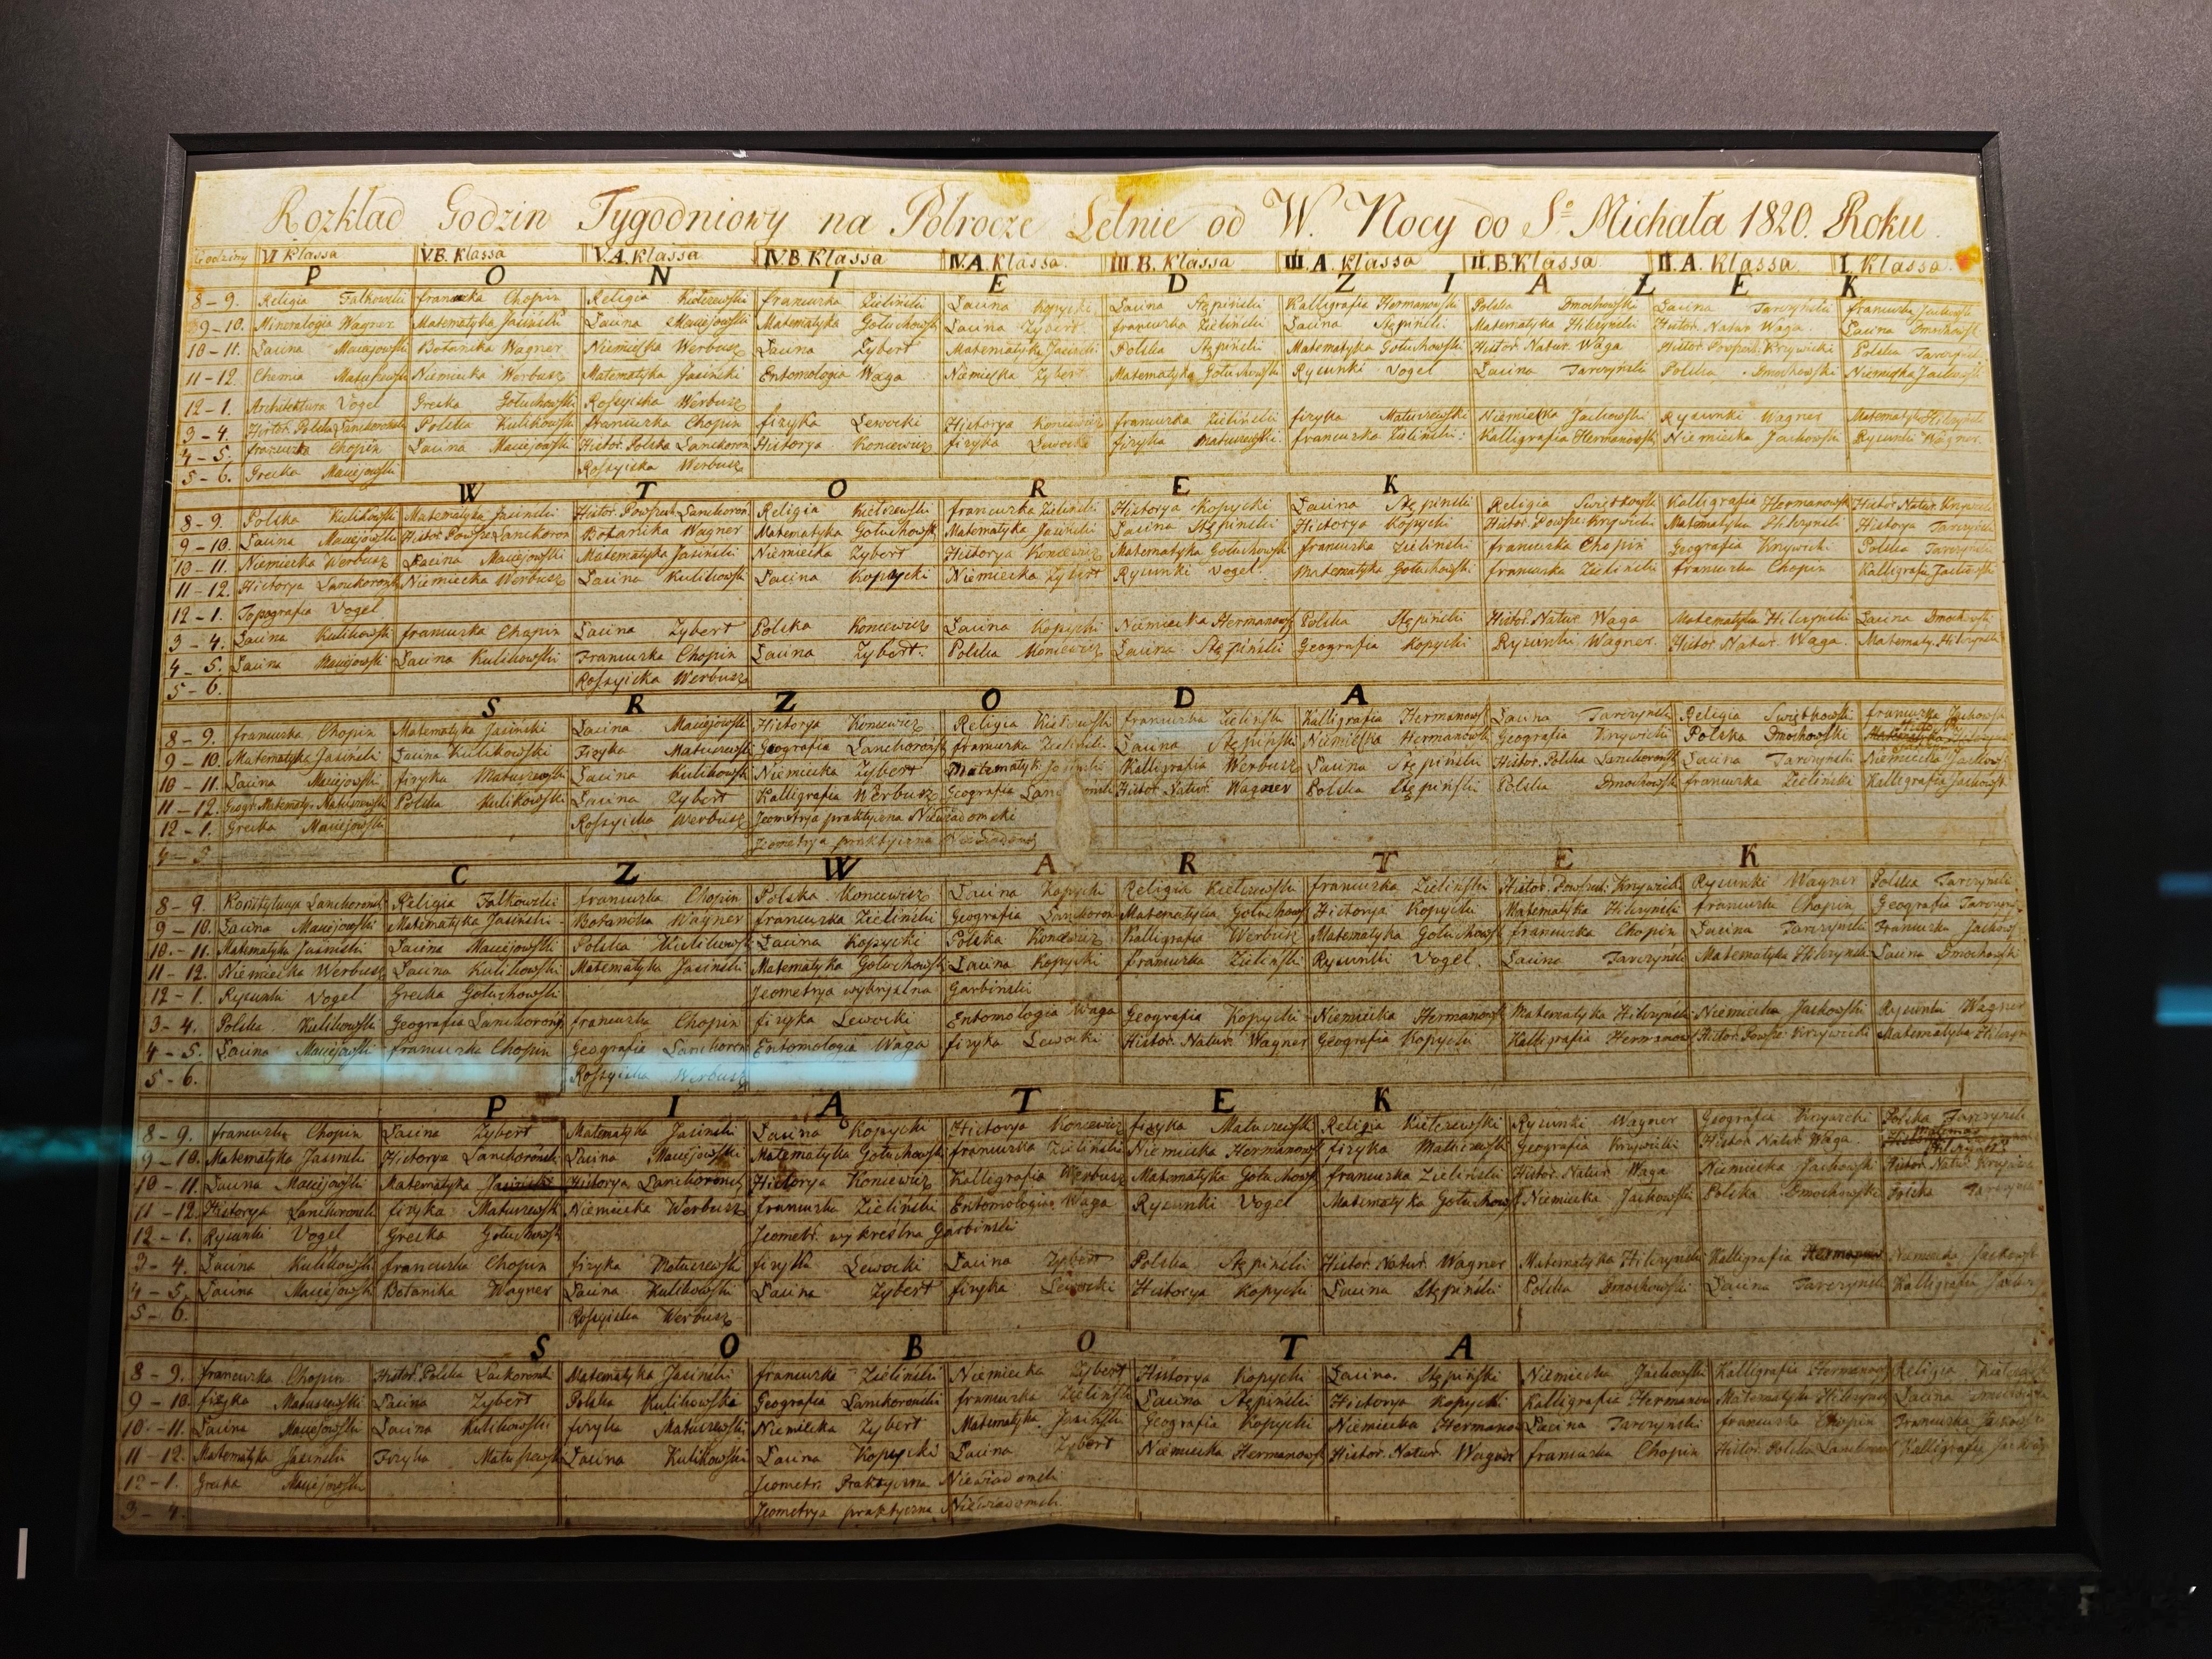 Rozkład Godzin Tygodniowy na Połrocze Letnie od W. Nocy do Sº Michała 1820. Roku.
Godziny VI Klassa V.B. Klassa V.A. Klassa IV.B. Klassa IV.A. Klassa. III.B. Klassa III.A. Klassa II.B. Klassa II.A. Klassa. I. Klassa.
P O N I E D Z I A Ł E K
8-9. Religia Falkowski francuzka Chopin Religia Kiełczewski francuzka Zieliński Łacina Kopycki Łacina Stępiński Kalligrafia Hermanowski Polska Dmochowski Łacina Tarczyński francuzka Jachowski
9-10. Mineralogia Wagner Matematyka Jasiński Łacina Maciejowski Matematyka Gołuchowsk Łacina Zybert francuzka Zieliński Łacina Stępiński Matematyka Hilczyński Histor. Natur. Waga Łacina Dmochowsk
10-11. Łacina Maciejowski Botanika Wagner Niemiecka Werbusz Łacina Zybert Matematyka Jasiński Polska Stępiński Matematyka Gołuchowski Histor. Natur. Waga Histor. Powszech. Krzywicki Polska Tarczyńsk
11-12. Chemia Matuszewski Niemiecka Werbusz Matematyka Jasiński Entomologia Waga Niemiecka Zybert Matematyka Gołuchowsk Rysunki Vogel Łacina Tarczyński Polska Dmochowski Niemiecka Jachowsk
12-1. Architektura Vogel Grecka Gołuchowsk Rossyiska Werbusz
3-4. Histor. Polska Lanckoroński Polska Kulikowski francuzka Chopin fizyka Lewocki Historya Koncewicz francuzka Zieliński fizyka Matuszewski Niemiecka Jachowski Rysunki Wagner Matematyka Hilczyński
4-5. francuzka Chopin Łacina Maciejowski Histor. Polska Lanckoron Historya Koncewicz fizyka Lewocki fizyka Matuszewski francuzka Zieliński Kalligrafia Hermanowski Niemiecka Jachowski Rysunki Wagner
5-6. Grecka Maciejowski Rossyiska Werbusz
W T O R E K
8-9. Polska Kulikowski Matematyka Jasiński Histor. Powszech. Lanckoron. Religia Kiełczewski francuzka Zieliński Historya Kopycki Łacina Stępiński Religia Świętkowski Kalligrafia Hermanowsk Histor. Natur. Krzywicki
9-10. Łacina Maciejowski Histor. Powsze. Lanckoron Botanika Wagner Matematyka Gołuchowsk Matematyka Jasiński Łacina Stępiński Historya Kopycki Histor. Powsze. Krzywicki Matematyka Hilczyński Historya Tarczyński
10-11. Niemiecka Werbusz Łacina Maciejowski Matematyka Jasiński Niemiecka Zybert Historya Koncewicz Matematyka Gołuchowsk francuzka Zieliński francuzka Chopin Geografia Krzywicki Polska Tarczyński
11-12. Historya Lanckoroński Niemiecka Werbusz Łacina Kulikowski Łacina Kopycki Niemiecka Zybert Rysunki Vogel Matematyka Gołuchowski francuzka Zieliński francuzka Chopin Kalligrafia Jachowski
12-1. Topografia Vogel
3-4. Łacina Kulikowski francuzka Chopin Łacina Zybert Polska Koncewicz Łacina Kopycki Niemiecka Hermanowsk Polska Stępiński Histor. Natur. Waga Matematyka Hilczyński Łacina Dmochowski
4-5. Łacina Maciejowski Łacina Kulikowski Francuzka Chopin Łacina Zybert. Polska Koncewicz Łacina Stępiński Geografia Kopycki Rysunki Wagner. Histor. Natur. Waga. Matematy. Hilczyński
5-6. Rossyiska Werbusz
S R Z O D A
8-9. francuzka Chopin Matematyka Jasiński Łacina Maciejowski Historya Koncewicz Religia Kiełczewski francuzka Zieliński Kalligrafia Hermanowsk Łacina Tarczyński Religia Świętkowski francuzka Jachowski
9-10. Matematyka Jasiński Łacina Kulikowski Fizyka Matuszewski Geografia Lanckorońsk francuzka Zieliński Łacina Stępiński Niemiecka Hermanowski Geografia Krzywicki Polska Dmochowski
10-11. Łacina Maciejowski. fizyka Matuszewski Łacina Kulikowsk Niemiecka Zybert Matematyk. Jasiński Kalligrafia Werbusz Łacina Stępiński Histor. Polska Lanckorońsk Łacina Tarczyński Niemiecka Jachowsk
11-12. Geogr. Matematyc. Matuszewsk Polska Kulikowski Łacina Zybert Kalligrafia Werbusz Geografia Histor. Natur. Wagner Polska Stępiński Polska Dmochowski francuzka Zieliński Kalligrafia Jachowsk
12-1. Grecka Maciejowski Rossyicka Werbusz Jeometrya praktyczna Niewiadomski
Jeometrya praktyczna Niewiadomsk
C Z W A R T E K
8-9. Konstytucya Lanckorońsk Religia Falkowski francuzka Chopin Polska Koncewicz Łacina Kopycki Religia Kiełczewski francuzka Zieliński Histor. Powszech. Krzywicki Rysunki Wagner Polska Tarczyński
9-10. Łacina Maciejowski Matematyka Jasiński Botanika Wagner francuzka Zieliński Geografia Lanckoron Matematyka Gołuchowsk Historya Kopycki Matematyka Hilczyński francuzka Chopin Geografia Tarczyńs
10.-11. Matematyka Jasiński Łacina Maciejowski Polska Kulikowsk Łacina Kopycki Polska Koncewicz Kalligrafia Werbusz Matematyka Gołuchowsk francuzka Chopin Łacina Tarczyński Francuzka Jachows
11-12. Niemiecka Werbusz Łacina Kulikowski Matematyka Jasiński Matematyka Gołuchowski Łacina Kopycki francuzka Zieliński Rysunki Vogel. Łacina Tarczyński Matematyka Hilczyński Łacina Dmochowski
12-1. Rysunki Vogel Grecka Gołuchowski Jeometrya wykryslna Garbiński
3-4. Polska Kulikowski Geografia Lanckorońs francuzka Chopin fizyka Lewocki Entomologia Waga Geografia Kopycki Niemiecka Hermanowsk Matematyka Hilczyński Niemiecka Jachowski Rysunki Wagner
4-5. Łacina Maciejowski francuzka Chopin Geografia Lanckoron Entomologia Waga fizyka Lewocki Histor. Natur. Wagner Geografia Kopycki Kalligrafia Hermanow Histor. Powsze. Krzywicki Matematyka Hilczyn
5-6. Rossyiska Werbusz
P I Ą T E K
8-9. francuzka Chopin Łacina Zybert Matematyka Jasiński Łacina Kopycki Historya Koncewicz fizyka Matuszewski Religia Kiełczewski Rysunki Wagner Geografia Krzywicki Polska Tarczyński
9-10. Matematyka Jasiński Historya Lanckoroński Łacina Maciejowsk Matematyka Gołuchowsk francuzka Zieliński Niemiecka Hermanowsk fizyka Matuszewski Geografia Krzywicki Histor. Natur. Waga.
10-11. Łacina Maciejowski Matematyka Jasiński Historya Lanckorońsk Historya Koncewicz Kalligrafia Werbusz Matematyka Gołuchowsk francuzka Zieliński Histor. Natur. Waga Niemiecka Jachowski Histor. Natur. Krzywic
11-12. Historya Lanckoroński fizyka Matuszewsk Niemiecka Werbusz francuzka Zieliński Entomologia Waga Rysunki Vogel Matematyka Gołuchowsk Niemiecka Jachowski Polska Dmochowski Polska Tarczyńs
12-1. Rysunki Vogel Grecka Gołuchowsk Jeometr. wykreślna Garbiński
3-4. Łacina Kulikowsk francuzka Chopin fizyka Matuszewski fizyka Lewocki Łacina Zybert Polska Stępiński Histor. Natur. Wagner Matematyka Hilczyński Kalligrafia Hermanow Niemiecka Jachowsk
4-5. Łacina Maciejowsk Botanika Wagner Łacina Kulikowski Łacina Zybert fizyka Lewocki Historya Kopycki Łacina Stępiński Polska Dmochowski Łacina Tarczyński Kalligrafia
5-6. Rossyiska Werbusz
S O B O T A
8-9. francuzka Chopin Histor. Polska Lackoroński Matematyka Jasiński francuzka Zieliński Niemiecka Zybert Historya Kopycki Łacina. Stępiński Niemiecka Jachowski Kalligrafia Hermanow Religia
9-10. fizyka Matuszewski Łacina Zybert Polska Kulikowska Geografia Lanckoroński francuzka Zieliński Łacina Stępiński Historya Kopycki Kalligrafia Hermanow Matematyka Hilczyńs Łacina Dmochowski
10-11. Łacina Maciejowski Łacina Kulikowski fizyka Matuszewski Niemiecka Zybert Matematyka Jasiński Geografia Kopycki Niemiecka Hermanow Łacina Tarczyński francuzka Chopin Francuzka Jachowsk
11-12. Matematyka Jasiński Fizyka Matuszewsk Łacina Kulikowski Łacina Kopycki Łacina Zybert Niemiecka Hermanowsk Histor. Natur. Wagner francuzka Chopin Histor. Polska Kalligrafia
12-1. Grecka Maciejowski Jeometr. Praktyczna Niewiadomski
3-4. Jeometrya praktyczna Niewiadomski